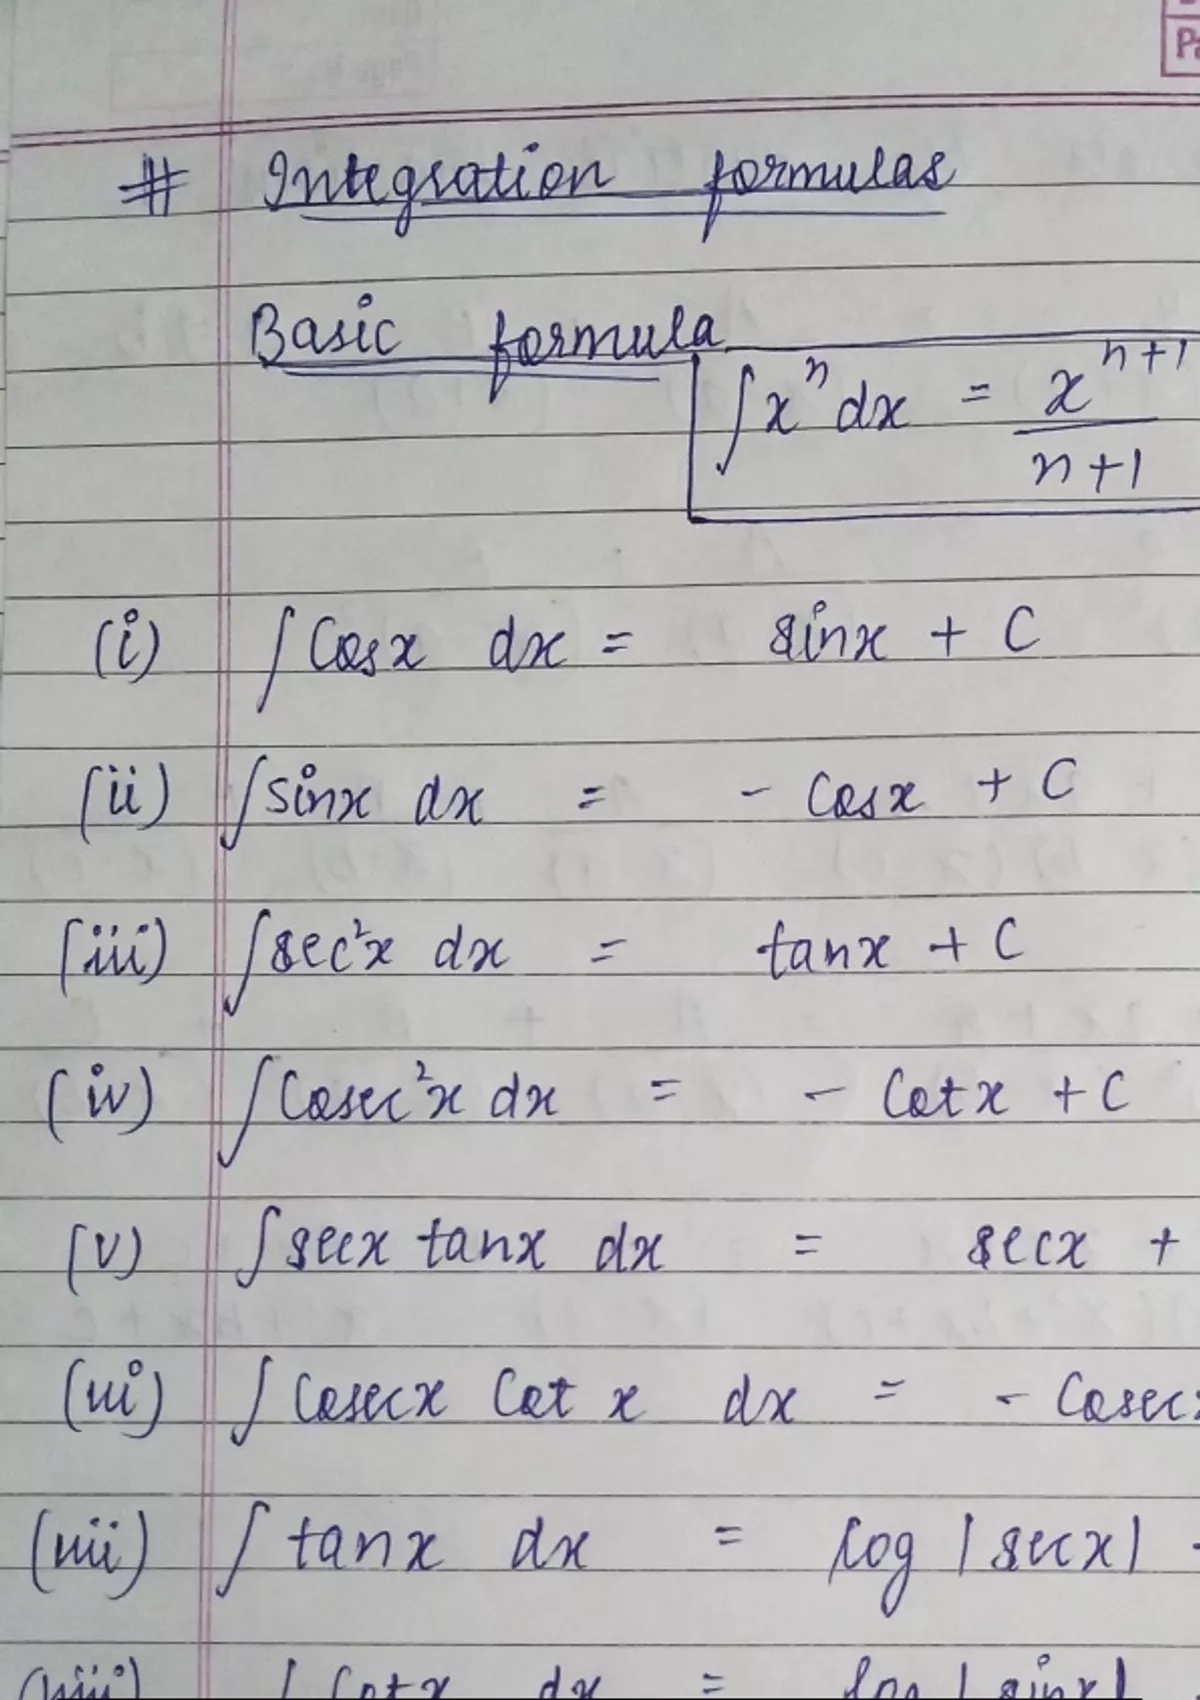 # Integration formulas
Basic formula
∫xⁿ dx = xⁿ⁺¹/n+1
(i) ∫Cosx dx = sinx + C
(ii) ∫sinx dx = - Cosx + C
(iii) ∫sec²x dx = tanx + C
(iv) ∫Cosec²x dx = - Cotx + C
(v) ∫secx tanx dx = secx +
(vi) ∫Cosecx Cot x dx = - Cosecx
(vii) ∫tanx dx = log |secx|
(viii) ∫Cotx dx = log |sinx|